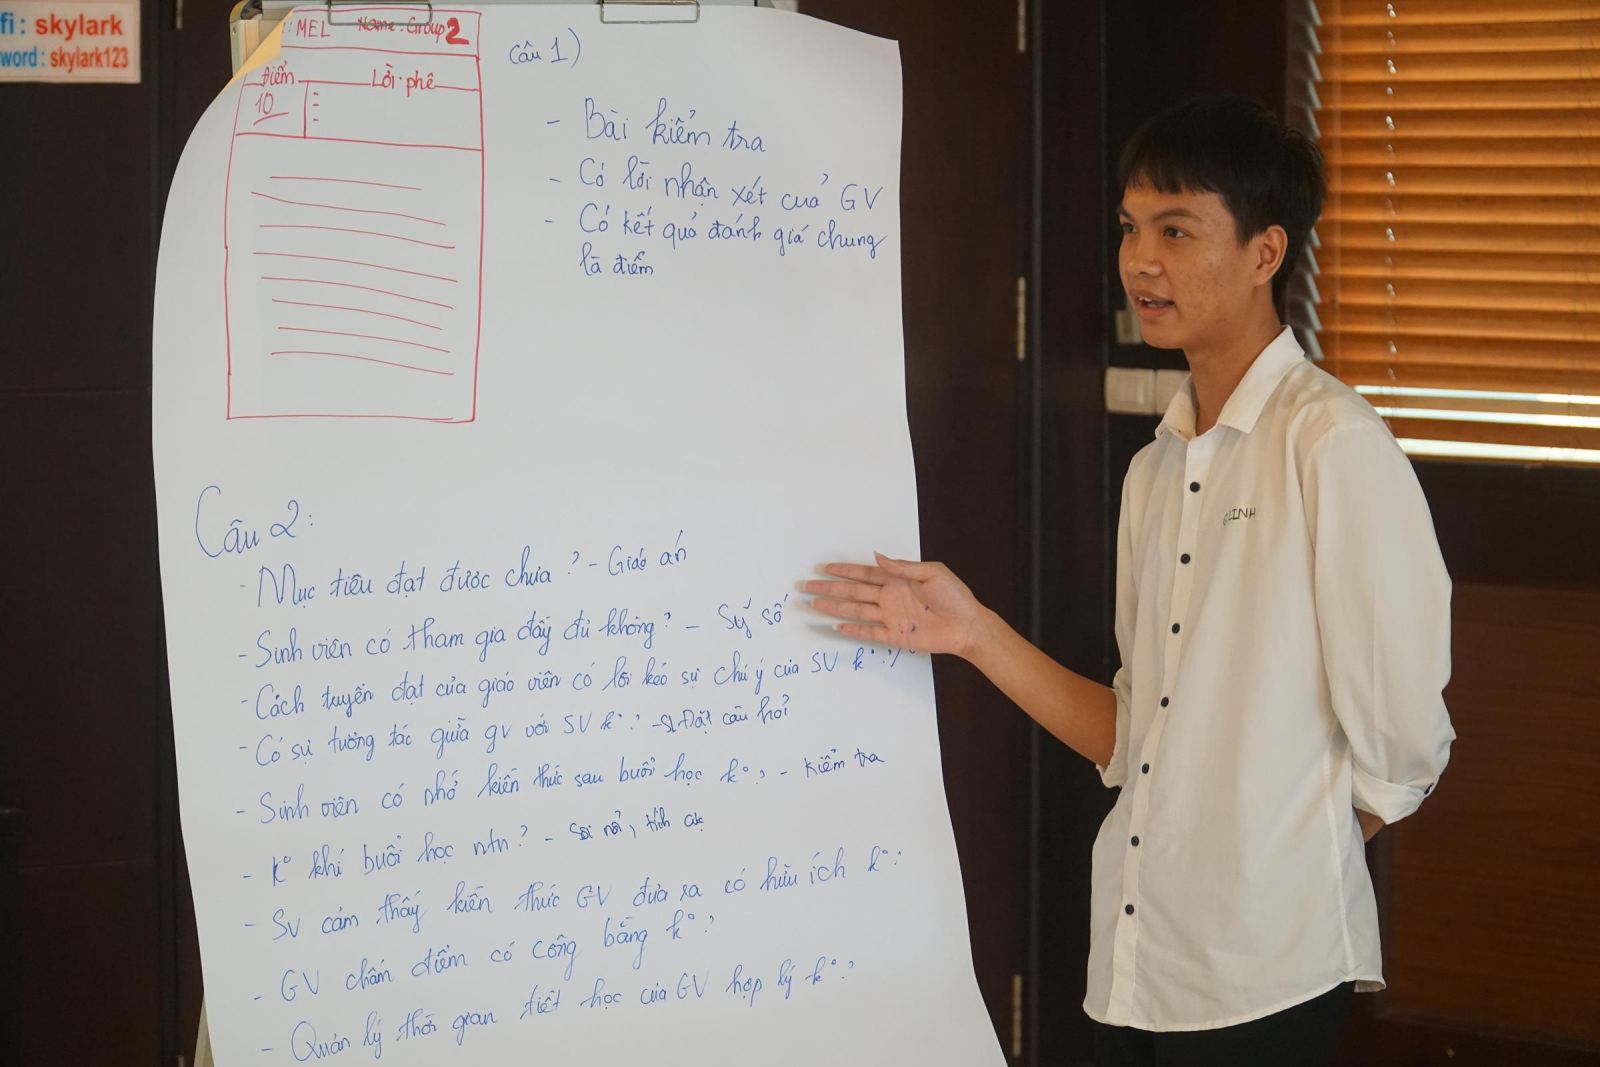 fi : skylark
word : skylark123
: MEL Name : Group 2
Điểm Lời phê
10
Câu 1)
- Bài kiểm tra
- Có lời nhận xét của GV
- Có kết quả đánh giá chung
là điểm
Câu 2:
- Mục tiêu đạt được chưa? - Giáo án
- Sinh viên có tham gia đầy đủ không? - Sỹ số
- Cách truyền đạt của giáo viên có lôi kéo sự chú ý của SV k°?
- Có sự tương tác giữa gv với SV k°? - Đặt câu hỏi
- Sinh viên có nhớ kiến thức sau buổi học k°? - Kiểm tra
- K° khí buổi học ntn? - Sôi nổi, tích cực
- SV cảm thấy kiến thức GV đưa ra có hữu ích k°?
- GV chấm điểm có công bằng k°?
- Quản lý thời gian tiết học của GV hợp lý k°?
LINH